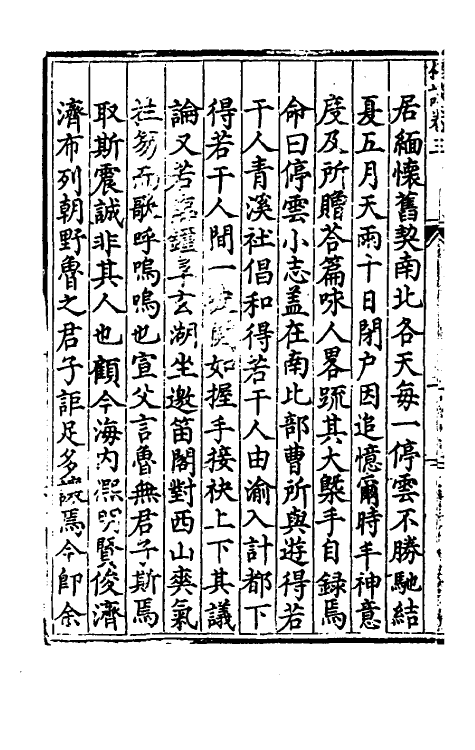 居緬懷舊契南北各天每一停雲不勝馳結
夏五月天雨十日閉户因追憶爾時丰神意
度及所贈荅篇咏人畧䟽其大槩手自録焉
命曰停雲小志盖在南北部曹所與遊得若
干人青溪社倡和得若干人由渝入計都下
得若干人間一披閱如握手接袂上下其議
論又若玄湖坐邀笛閣對西山爽氣
而歌呼嗚嗚也宣父言魯無君子斯焉
取斯震誠非其人也顧今海内熙明賢俊濟
濟布列朝野魯之君子詎足多焉今即余
卷三